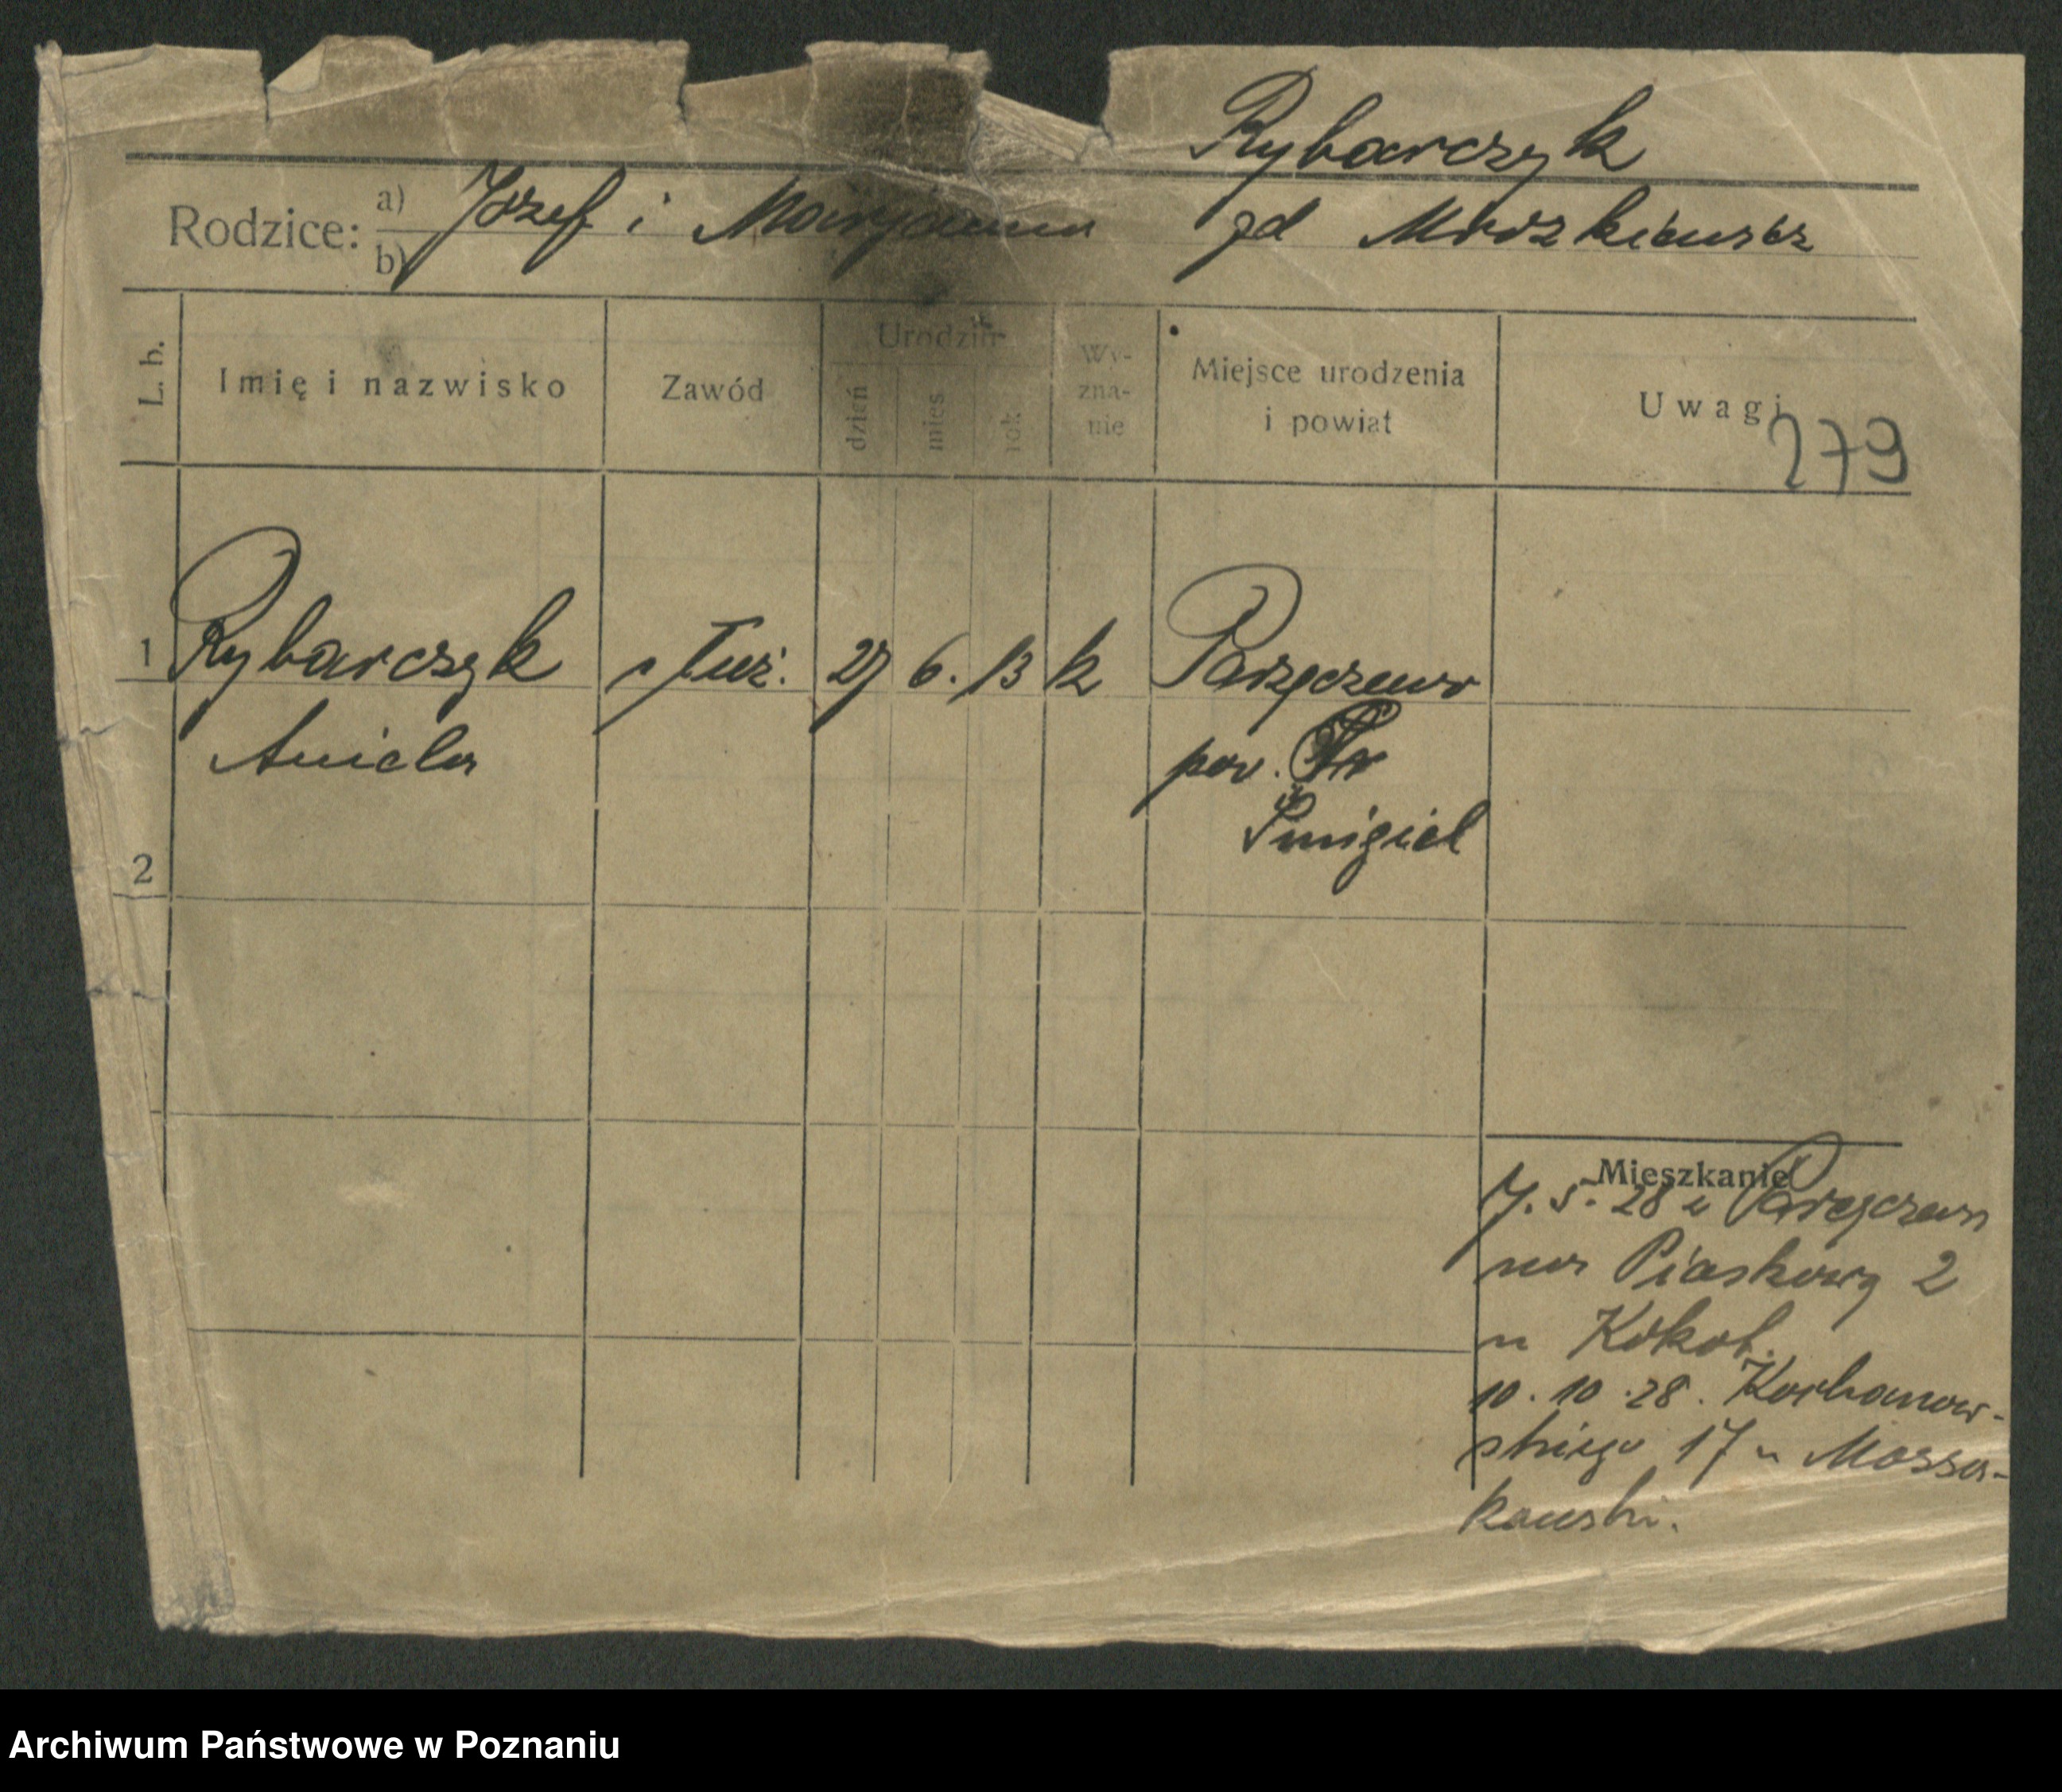 Rybarczyk
Rodzice: a) Józef i Maryanna zd Mrozkiewicz
b)
L. b.
Imię i nazwisko
Zawód
Urodzin
dzień
mies
rok
Wy-
zna-
nie
Miejsce urodzenia
i powiat
Uwagi
279
1 Rybarczyk służ. 27 6. 13 k Parzęczewo
Aniela pow.
Śmigiel
2
Mieszkanie
7. 5. 28 z Parzęczewa
na Piaskową 2
u Kokot.
10. 10. 28. Kochanow-
skiego 17 u Mossa-
kowski.
Archiwum Państwowe w Poznaniu